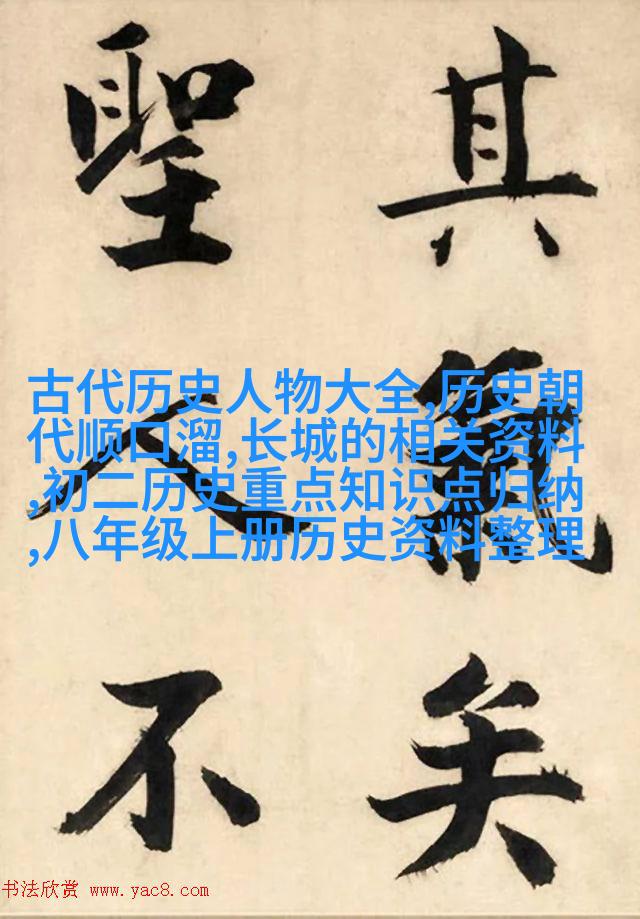 其
矣
聖人不
古代历史人物大全,历史朝
代顺口溜,长城的相关资料
,初二历史重点知识点归纳
,八年级上册历史资料整理
书法欣赏 www.yac8.com